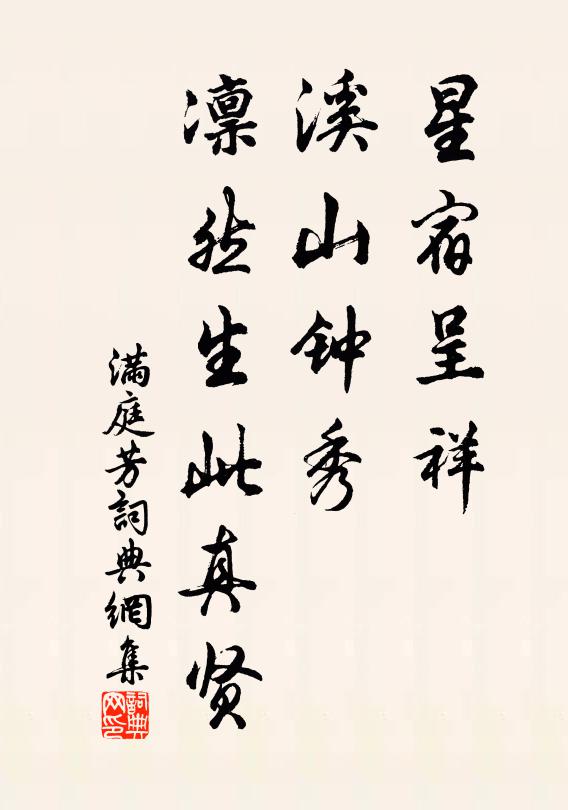 星宿呈祥
溪山钟秀
凛然生此真贤
满庭芳詞典網集
詞典
网印